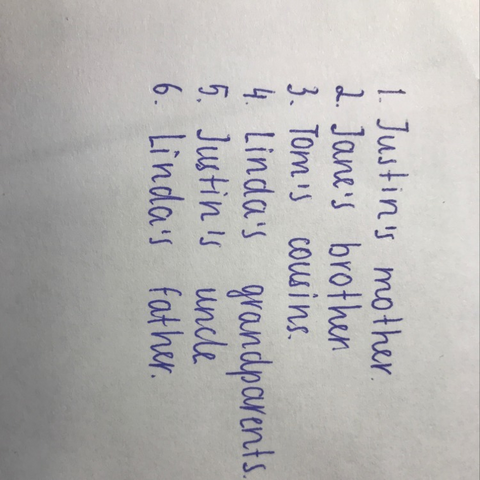 1. Justin's mother.
2. Jane's brother
3. Tom's cousins.
4. Linda's grandparents.
5. Justin's uncle
6. Linda's father.